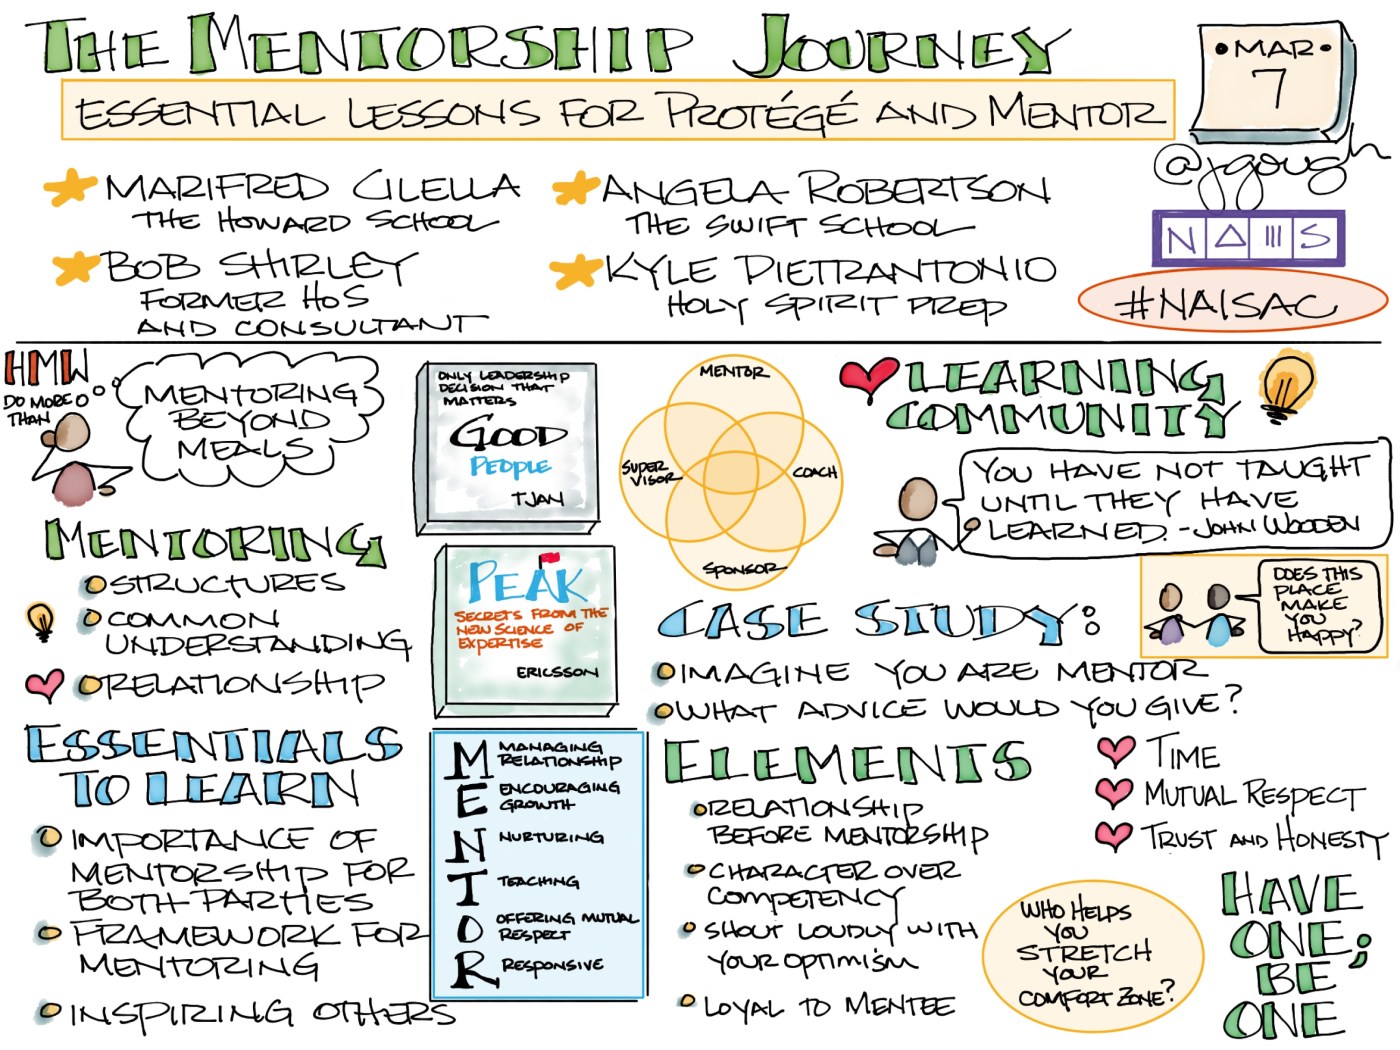 THE MENTORSHIP JOURNEY
ESSENTIAL LESSONS FOR PROTÉGÉ AND MENTOR
• MAR •
7
@jgough
NAIS
#NAISAC
MARIFRED CILELLA
THE HOWARD SCHOOL
ANGELA ROBERTSON
THE SWIFT SCHOOL
BOB SHIRLEY
FORMER HOS
AND CONSULTANT
KYLE PIETRANTONIO
HOLY SPIRIT PREP
HMW
DO MORE
THAN
MENTORING
BEYOND
MEALS
MENTORING
STRUCTURES
COMMON
UNDERSTANDING
RELATIONSHIP
ESSENTIALS
TO LEARN
IMPORTANCE OF
MENTORSHIP FOR
BOTH PARTIES
FRAMEWORK FOR
MENTORING
INSPIRING OTHERS
ONLY LEADERSHIP
DECISION THAT
MATTERS
GOOD
PEOPLE
TJAN
PEAK
SECRETS FROM THE
NEW SCIENCE OF
EXPERTISE
ERICSSON
M MANAGING
RELATIONSHIP
E ENCOURAGING
GROWTH
N NURTURING
T TEACHING
O OFFERING MUTUAL
RESPECT
R RESPONSIVE
MENTOR
SUPER
VISOR
COACH
SPONSOR
LEARNING
COMMUNITY
YOU HAVE NOT TAUGHT
UNTIL THEY HAVE
LEARNED. - JOHN WOODEN
DOES THIS
PLACE
MAKE
YOU
HAPPY?
CASE STUDY:
IMAGINE YOU ARE MENTOR
WHAT ADVICE WOULD YOU GIVE?
ELEMENTS
RELATIONSHIP
BEFORE MENTORSHIP
CHARACTER OVER
COMPETENCY
SHOUT LOUDLY WITH
YOUR OPTIMISM
LOYAL TO MENTEE
TIME
MUTUAL RESPECT
TRUST AND HONESTY
WHO HELPS
YOU
STRETCH
YOUR
COMFORT ZONE?
HAVE
ONE;
BE
ONE